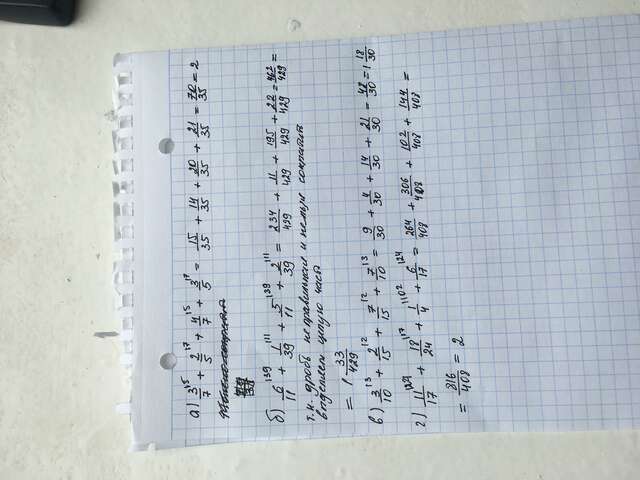 а) 3/7 ^5 + 2/5 ^7 + 4/7 ^5 + 3/5 ^7 = 15/35 + 14/35 + 20/35 + 21/35 = 70/35 = 2
б) 6/11 ^39 + 1/39 ^11 + 5/11 ^39 + 2/39 ^11 = 234/429 + 11/429 + 195/429 + 22/429 = 462/429 =
т.к. дробь не правильная и нельзя сократить
выделяем целую часть
= 1 33/429
в) 3/10 ^3 + 2/15 ^2 + 7/15 ^2 + 7/10 ^3 = 9/30 + 4/30 + 14/30 + 21/30 = 48/30 = 1 18/30
г) 11/17 ^24 + 18/24 ^17 + 1/4 ^102 + 6/17 ^24 = 264/408 + 306/408 + 102/408 + 144/408 =
= 816/408 = 2